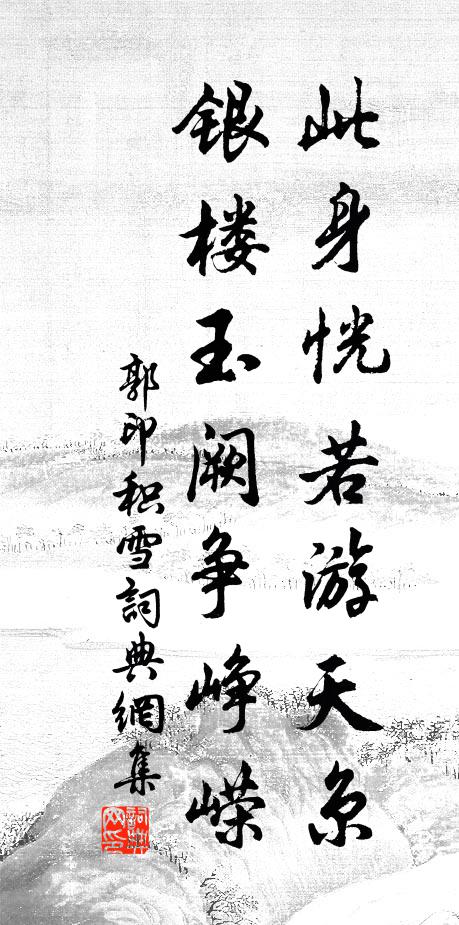 此身恍若游天京
银楼玉阙争峥嵘
郭印积雪詞典網集